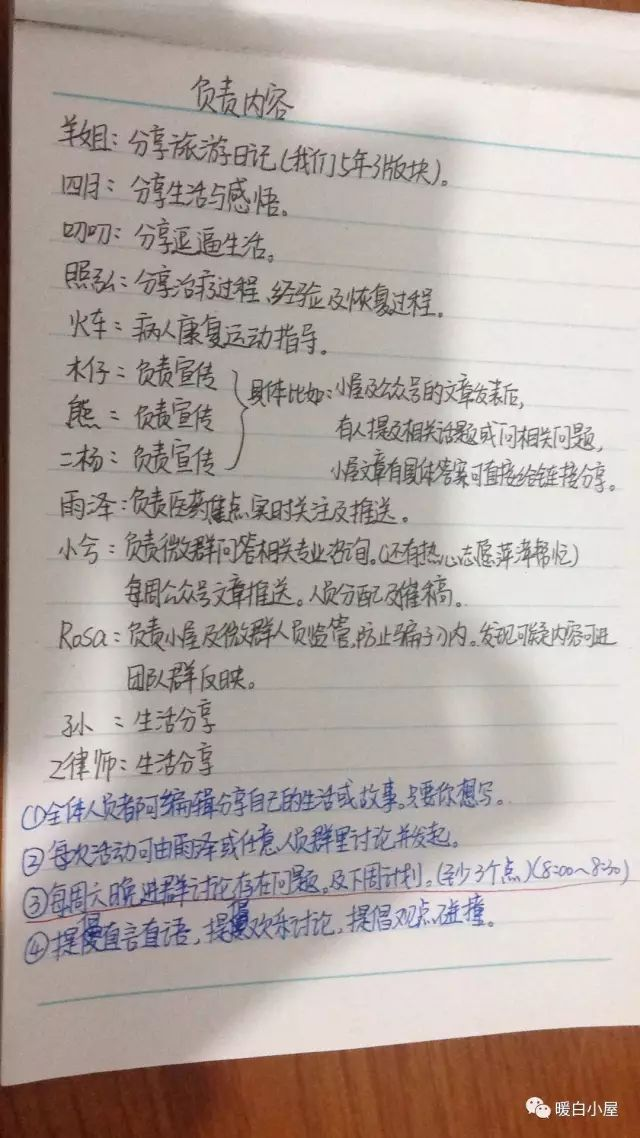 负责内容
羊姐：分享旅游日记(我们5年引版块)。
四月：分享生活与感悟。
叨叨：分享逗逼生活。
照弘：分享治疗过程、经验及恢复过程。
火车：病人康复运动指导。
木仔：负责宣传
熊：负责宣传
二杨：负责宣传
具体比如：小屋及公众号的文章发表后，
有人提及相关话题或问相关问题，
小屋文章有具体答案可直接给链接分享。
雨泽：负责医药焦点实时关注及推送。
小兮：负责微群问答相关专业咨询。(还有热心志愿萍萍帮忙)
每周公众号文章推送。人员分配及催稿。
Rosa：负责小屋及微群人员监管，防止骗子入内。发现可疑内容可进
团队群反映。
孙：生活分享
Z律师：生活分享
①全体人员都可编辑分享自己的生活或故事。只要你想写。
②每次活动可由雨泽或任意人员群里讨论并发起。
③每周六晚进群讨论存在问题。及下周计划。(至少3个点)(8:00~8:30)
④提倡直言直语，提倡欢乐讨论，提倡观点碰撞。
暖白小屋